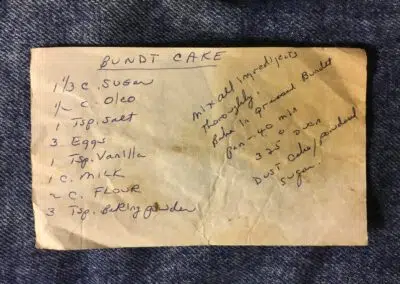 BUNDT CAKE
1 1/3 C. SUGAR
1/2 C. Oleo
1 Tsp. Salt
3 Eggs
1 Tsp. Vanilla
1 C. MILK
2 C. FLOUR
3 Tsp. Baking powder
Mix all ingredients
Thoroughly.
Bake in greased Bundt
pan - 40 min
325° oven
DUST Cake/powdered
Sugar.